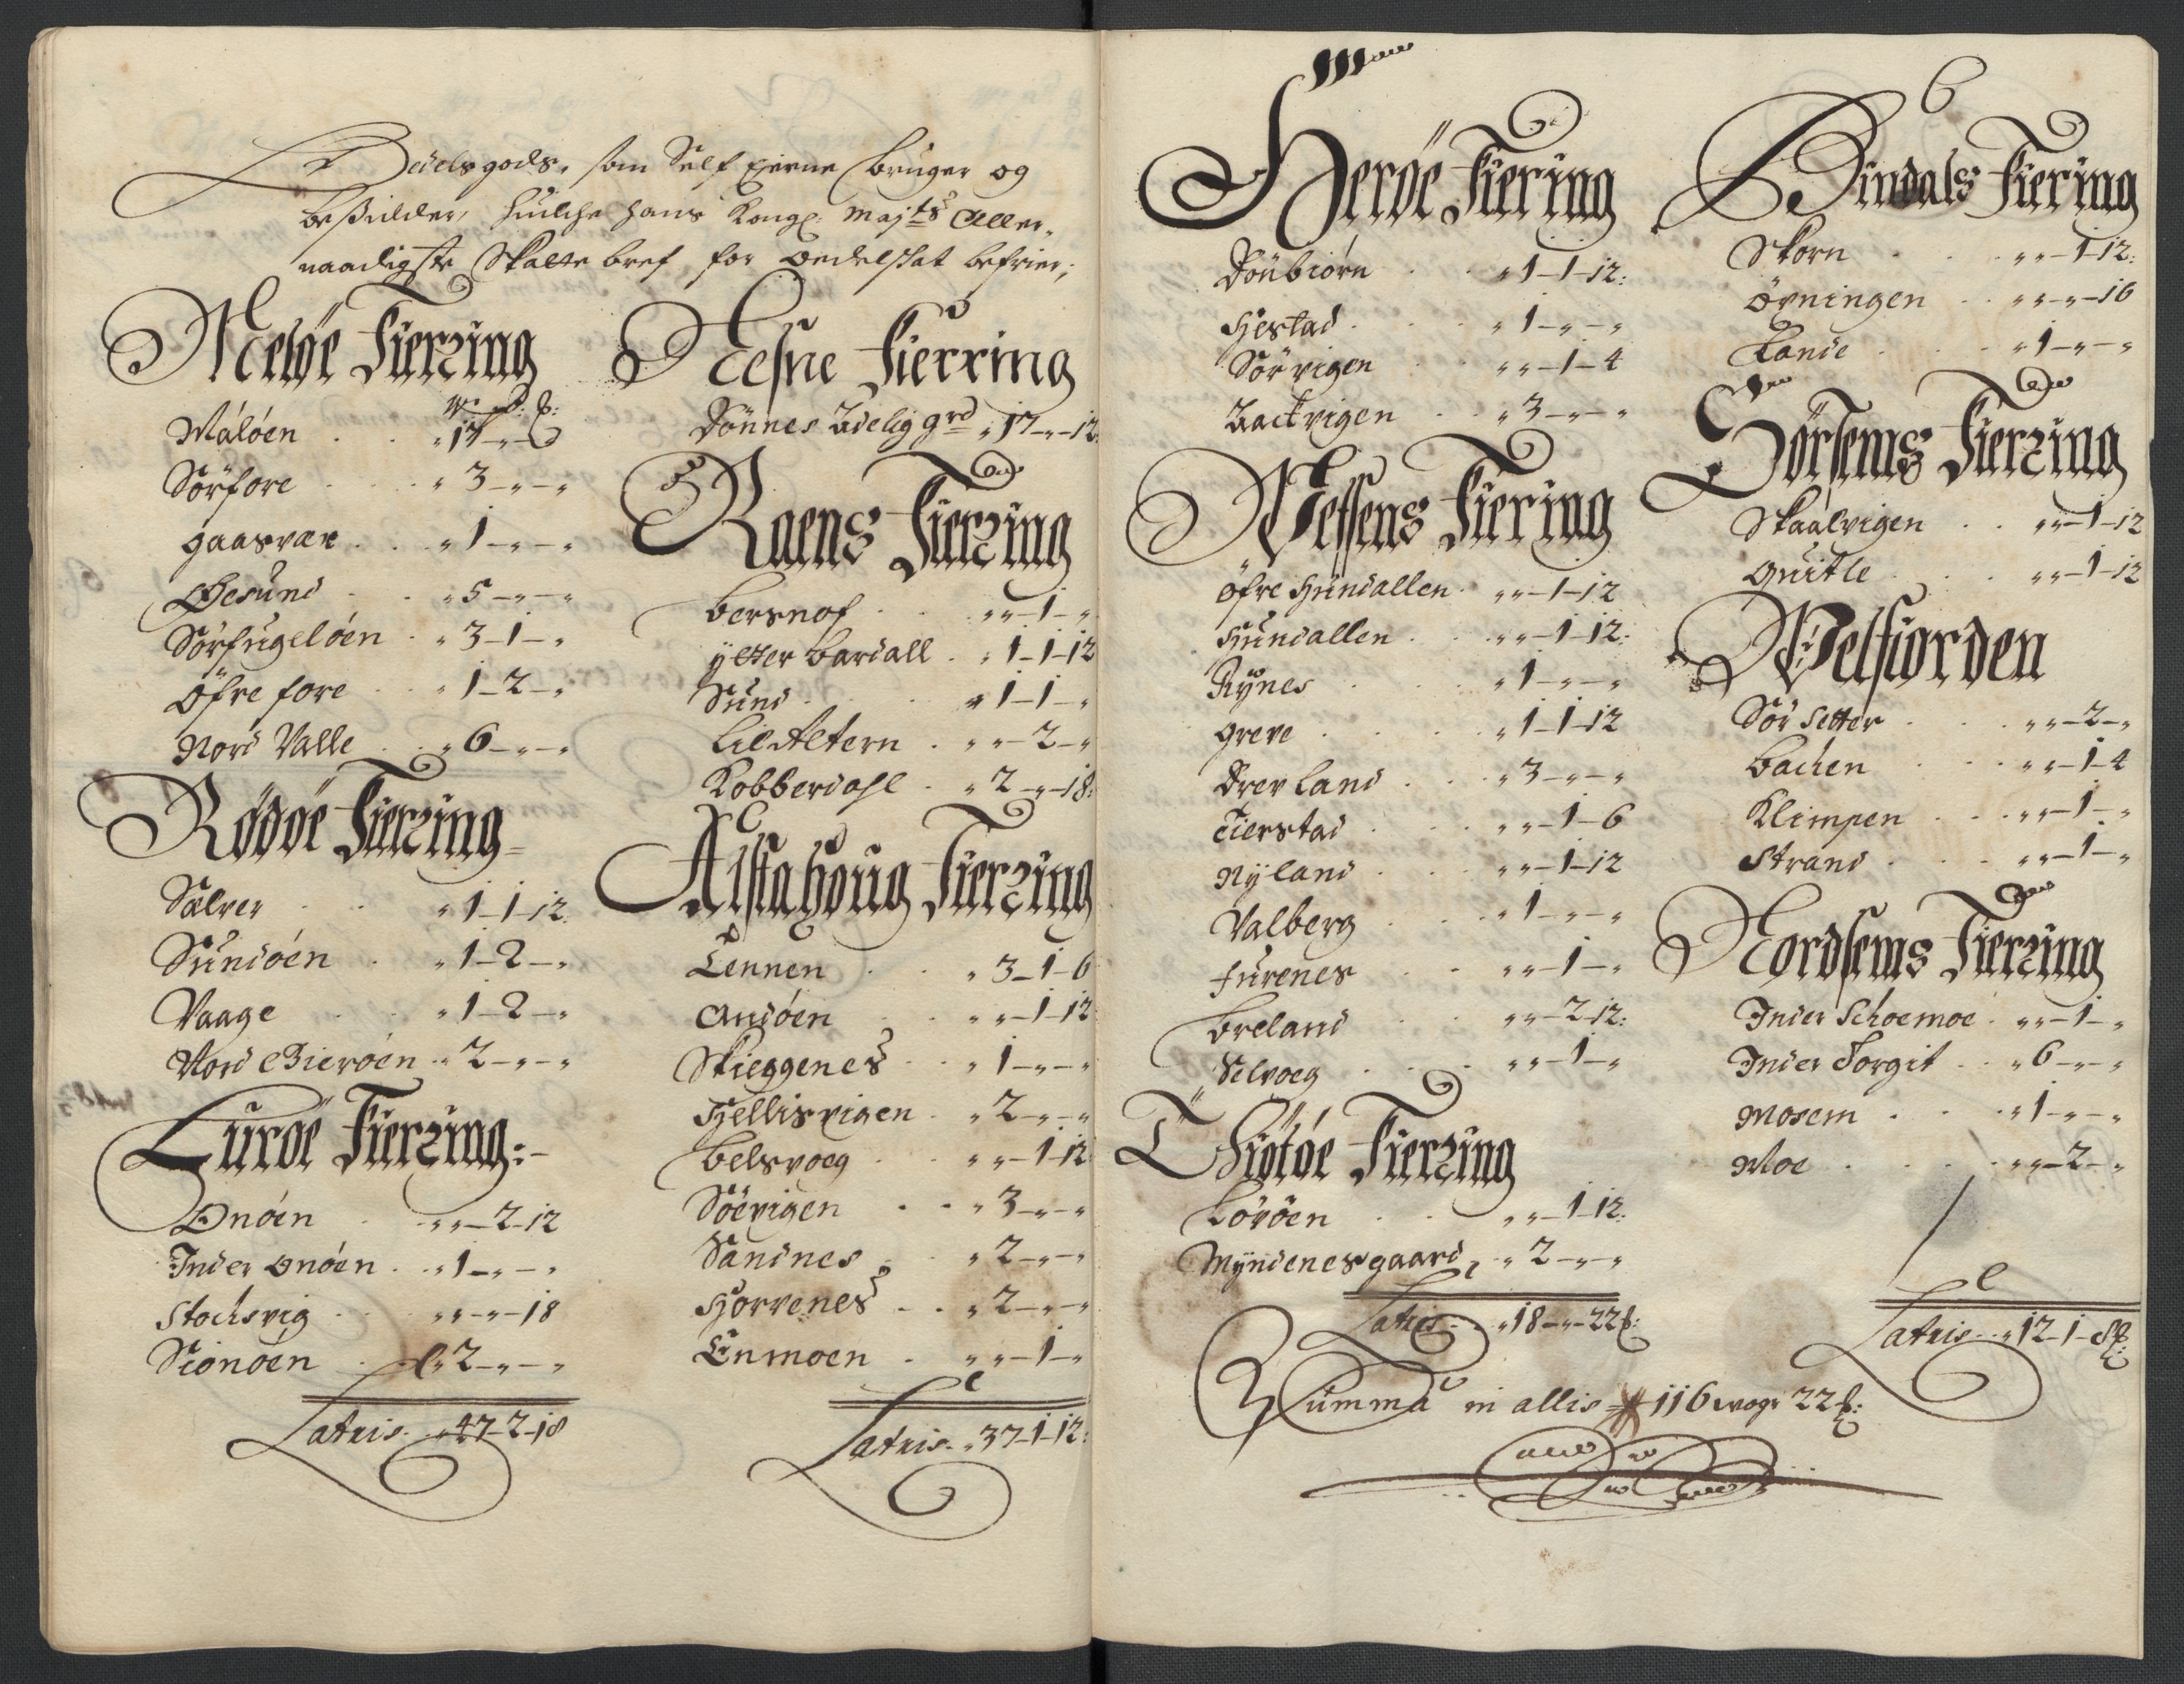 Odelsgods, som Self Eierne bruger og
besidder, huilche hans Kongl: Majts Aller,,
naadigste Skatte bref for Oedelskat befrier;
Meløe Fierring
W: pd: ℔:
Måløen . . „ 17 – „ – „
Sörfore . . „ 3 – „ – „
Gaasvær . . „ 1 – „ – „
Gesund . . „ 5 – „ – „
Sörfugelöen . „ 3 – 1 – „
öfre fore . „ 1 – 2 – „
Nord Valle . . „ 6 – „ – „
Rödöe Fierring
Sælver . . „ 1 – 1 – 12.
Sundöen . „ 1 – 2 – „
Vaage . „ 1 – 2 – „
Nord Bieröen . „ 2 – „ – „
Luröe Fierring:
Onöen . „ „ – 2 – 12
Inder onöen . „ 1 – „ – „
Stochsvig . „ „ – „ – 18
Sionöen . „ 2 – „ – „
Latris . „ 47 – 2 – 18
Nesne Fierring
Dönnes Adelig grd „ 17 – „ – 12
Raens Fierring
Bersnof . „ „ – 1 – „
ÿtter Bardall . „ 1 – 1 – 12
Sund . „ 1 – 1 – „
Lil Altern . „ „ – 2 – „
Kobberdahl . „ 2 – „ – 18.
Alstahoug Fierring
Lennen . „ 3 – 1 – 6
Andöen . „ „ – 1 – 12
Skieggenes . „ 1 – „ – „
Hellisvigen . „ 2 – „ – „
Belsvoeg . „ „ – 1 – 12
Söevigen . . „ 3 – „ – „
Sandnes . „ 2 – „ – „
Horvenes . . „ 2 – „ – „
Enmoen . „ „ – 1 – „
Latris . „ 37 – 1 – 12:
Heröe Fiering
Döübiörn . „ 1 – 1 – 12:
Hestad . „ 1 – „ – „
Sörvigen . „ „ – 1 – 4
Backvigen . „ 3 – „ – „
Nessens Fiering
öfre Hundallen . „ „ – 1 – 12
Hundallen . „ „ – 1 – 12:
Rÿnes . „ 1 – „ – „
Greve . „ 1 – 1 – 12
Drevland . „ 3 – „ – „
Tierstad . „ „ – 1 – 6
Nÿland . „ „ – 1 – 12
Valberg . „ 1 – „ – „
Furenes . „ „ – 1 – „
Breland . „ „ – 2 – 12:
Selvoeg . „ „ – 1 – „
Thiötöe Fierring
Lövöen . „ „ – 1 – 12:
Mÿndenesgaard, . „ 2 – „ – „
Latris . „ 18 – „ – 22 ℔:
6
Bindals Fiering
Skorn . „ „ – 1 – 12:
Övningen . „ „ – „ – 16
Lande . „ 1 – „ – „
Sörsems Fierring
Skaalvigen . . „ „ – 1 – 12
Quitle . „ „ – 1 – 12
Velfiorden
Sör Setter . „ „ – 2 – „
Bachen . „ „ – 1 – 4
Klimpen . „ „ – 1 – „
Strand . „ „ – 1 – „
Nordsems Fierring
Inder Schoemoe . „ „ – 1 – „
Inder Torgit . . „ 6 – „ – „
Mosem . „ 1 – „ – „
Moe . „ „ – 2 – „
Latris . „ 12 – 1 – 8 ℔:
Summa in allis 116 woger 22 ℔: